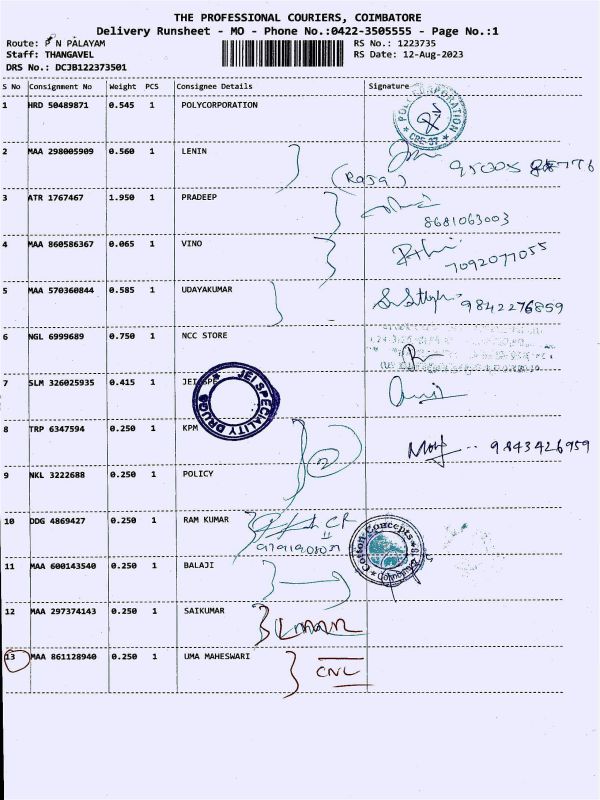 THE PROFESSIONAL COURIERS, COIMBATORE
Delivery Runsheet - MO - Phone No.:0422-3505555 - Page No.:1
Route: P N PALAYAM RS No.: 1223735
Staff: THANGAVEL RS Date: 12-Aug-2023
DRS No.: DCJB122373501
S No Consignment No Weight PCS Consignee Details Signature
1 HRD 50489871 0.545 1 POLYCORPORATION
POLY CORPORATION
CBE-37
2 MAA 298005909 0.560 1 LENIN
(Raja)
3 ATR 1767467 1.950 1 PRADEEP
8681063003
4 MAA 860586367 0.065 1 VINO
7092077055
5 MAA 570360844 0.585 1 UDAYAKUMAR
9842276859
6 NGL 6999689 0.750 1 NCC STORE
7 SLM 326025935 0.415 1 JEI SPE
JEI SPECIALITY DRUGS
8 TRP 6347594 0.250 1 KPM
2 9843426959
9 NKL 3222688 0.250 1 POLICY
10 DDG 4869427 0.250 1 RAM KUMAR
Cotton Concepts
11 MAA 600143540 0.250 1 BALAJI
12 MAA 297374143 0.250 1 SAIKUMAR
13 MAA 861128940 0.250 1 UMA MAHESWARI
CNL